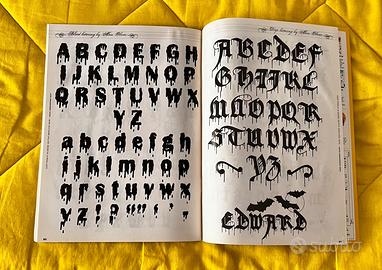 Blood lettering by
A B C D E F G H
I J K L M N O P
Q R S T U V W X
Y Z
a b c d e f g h
i j k l m n o p
q r s t u v w x
y z ! ?
Drip lettering by
A B C D E F
G H I J K L
M N O P Q R
S T U V W X
Y Z
EDWARD
subito